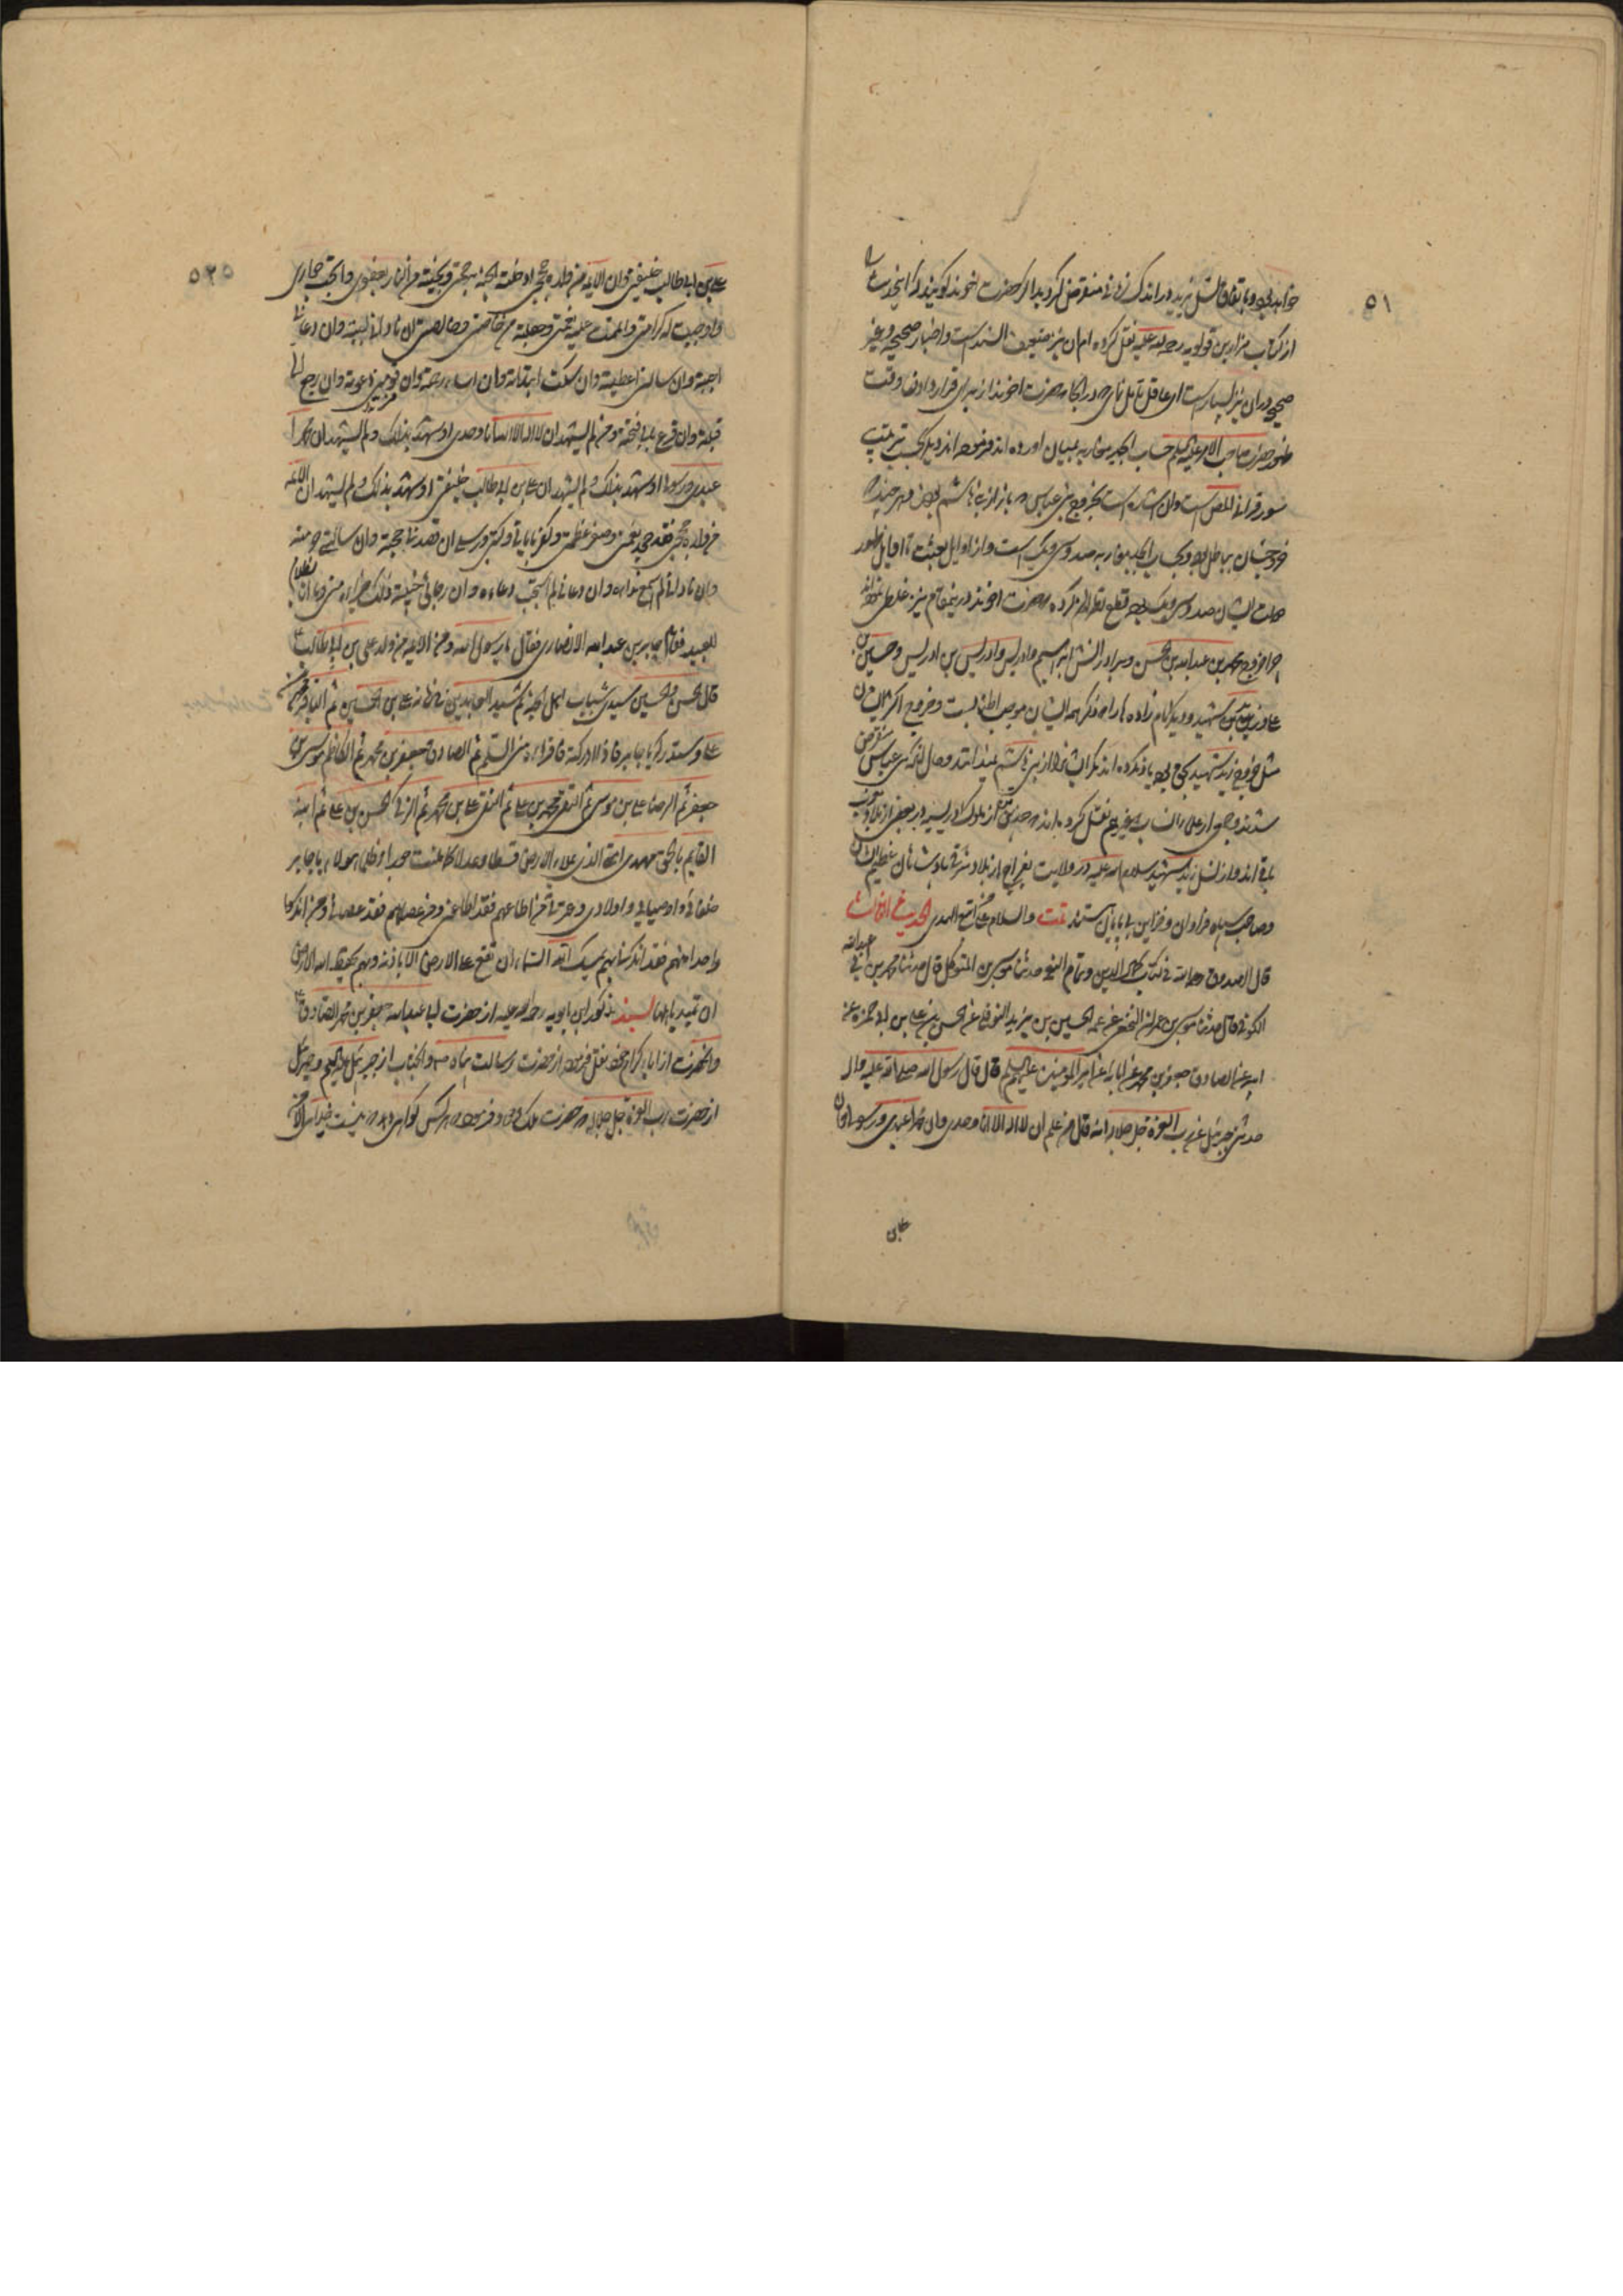 ۵۱
خواهد بود و باتفاق نسل یزید در اندک زمانی منقرض گردید اگر حضرت اخوند گویند که این حدیث را
از کتاب مزار ابن قولویه رحمة الله علیه نقل کرده ام ان نیز ضعیف السند است و اخبار صحیحه و غیر
صحیحه در ان نیز بسیار است
ظهور حضرت صاحب الامر علیه السلم حساب ابجد مغاربه بمیان اورده اند و فرموده اند دیگر بحسب ترتیب
سور قرانی المص است و ان اشاره است بخروج بنی عباس که باز از بنی هاشم بودند هر چند که
خروجشان بباطل بود و بحساب ابجد مغاربه صد و سی و یک است و از اوایل بعثت تا اوایل ظهور
دولت ایشان صد و سی و یک بود قطع نظر کرده حضرت اخوند در ینمقام نیز غلطی
چرا خروج محمد بن عبدالله بن الحسن و برادرانش ابراهیم و ادریس و ادریس بن ادریس و حسین بن
علی و زید بن علی شهید و دیگر امام زاده ها را که ذکر همه ایشان موجب اطناب است و خروج اکثر ایشان
مثل خروج زید شهید بحق بود یاد نکرده اند مگر ایشان را از بنی هاشم نمیدانند و حال انکه بنی عباس منقرض
شدند و جمعی از علماء انساب و غیرهم نقل کرده اند که جمعی از ملوک ادریسیه در بعضی از بلاد مغرب
باقی اند و از نسل زید شهید سلام الله علیه در ولایت از بلاد شرق پادشاهان عظیم الشان
و صاحب سپاه فراوان و خزاین بی پایان هستند تمت والسلام علی من اتبع الهدی الحدیث الثالث
قال الصدوق رحمه الله فی کتاب کمال الدین و تمام النعمه حدثنا محمد بن موسی بن المتوکل قال حدثنا محمد بن ابی عبدالله
الکوفی قال حدثنا موسی بن عمران النخعی عن عمه الحسین بن یزید النوفلی عن الحسن بن علی بن ابی حمزه عن
ابیه عن الصادق جعفر بن محمد عن ابائه عن امیر المومنین علیهم السلم قال قال رسول الله صلی الله علیه و اله
حدثنی جبرئیل عن رب العزه جل جلاله انه قال من علم ان لا اله الا انا وحدی و ان محمدا عبدی و رسولی و ان
علی بن
۵۲۵
علی بن ابی طالب خلیفتی و ان الائمه من ولده حججی ادخلته الجنه برحمتی و نجیته من النار بعفوی و ابحت له جواری
و اوجبت له کرامتی و اتممت علیه نعمتی و جعلته من خاصتی و خالصتی ان نادانی لبیته و ان دعانی
اجبته و ان سالنی اعطیته و ان سکت ابتداته و ان اساء رحمته و ان فر منی دعوته و ان رجع الی
قبلته و ان قرع بابی فتحته و من لم یشهد ان لا اله الا انا وحدی او شهد بذلک و لم یشهد ان محمدا
عبدی و رسولی او شهد بذلک و لم یشهد ان علی بن ابی طالب خلیفتی او شهد بذلک و لم یشهد ان الائمه
من ولده حججی فقد جحد نعمتی و صغر عظمتی و کفر بایاتی و کتبی و رسلی ان قصدنی حجبته و ان سالنی حرمته
و ان نادانی لم اسمع نداءه و ان دعانی لم استجب دعاءه و ان رجانی خیبته و ذلک جزاءه منی و ما انا بظلام
للعبید فقام جابر بن عبدالله الانصاری فقال یا رسول الله و من الائمه من ولد علی بن ابی طالب
قال الحسن و الحسین سیدی شباب اهل الجنه ثم سید العابدین فی زمانه علی بن الحسین ثم الباقر محمد بن
علی و ستدرکه یا جابر فاذا ادرکته فاقراه منی السلم ثم الصادق جعفر بن محمد ثم الکاظم موسی بن
جعفر ثم الرضا علی بن موسی ثم التقی محمد بن علی ثم النقی علی بن محمد ثم الزکی الحسن بن علی ثم ابنه
القایم بالحق مهدی امتی الذی یملاء الارض قسطا و عدلا کما ملئت جورا و ظلما هولاء یا جابر
خلفائی و اوصیایی و اولادی و عترتی من اطاعهم فقد اطاعنی و من عصاهم فقد عصانی و من انکر
واحدا منهم فقد انکرنی بهم یمسک الله السماء ان تقع علی الارض الا باذنه و بهم یحفظ الله الارض
ان تمید باهلها بسند مذکور ابن بابویه رحمة الله علیه از حضرت ابا عبدالله جعفر بن محمد الصادق
و انحضرت از اباء کرام خود نقل فرموده از حضرت رسالت پناه و انجناب از جبرئیل علیه السلم و جبرئیل
از حضرت رب العزه جل جلاله که حضرت ملک ودود فرمود که هر کس گواهی دهد که نیست خدایی الا من